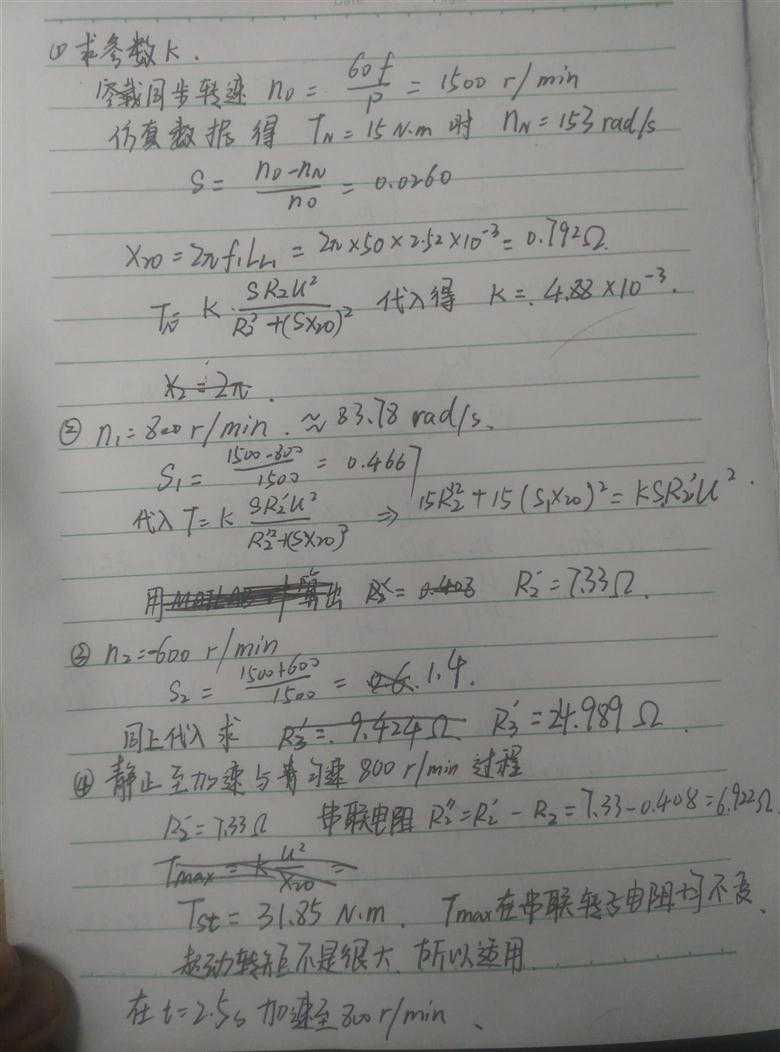 (1) 求参数K.
空载同步转速 n0 = 60f/P = 1500 r/min
仿真数据得 TN = 15 N·m 时 nN = 153 rad/s
S = (n0-nN)/n0 = 0.0260
X20 = 2πf1L21 = 2π×50×2.52×10^-3 = 0.792Ω.
TN= K·SR2U²/(R2²+(SX20)²) 代入得 K = 4.88×10^-3.
X2 = 2π.
② n1 = 800 r/min. ≈ 83.78 rad/s.
S1 = (1500-800)/1500 = 0.4667
代入 T = K SR2'U²/(R2'²+(SX20)²) ⇒ 15R2'²+15(S1X20)² = KSR2'U².
用MATLAB计算出 R2' = 0.403 R2' = 7.33Ω.
③ n2 = -600 r/min
S2 = (1500+600)/1500 = 0.6. 1.4.
同上代入求 R3' = 9.424Ω R3' = 24.989Ω.
④ 静止至加速与匀速 800 r/min 过程
R2' = 7.33Ω 串联电阻 R2'' = R2' - R2 = 7.33-0.408 = 6.922Ω
Tmax = K U²/X20 =
Tst = 31.85 N·m. Tmax在串联转子电阻均不变.
起动转矩不是很大. 所以适用.
在t=2.5s 加速至800r/min.